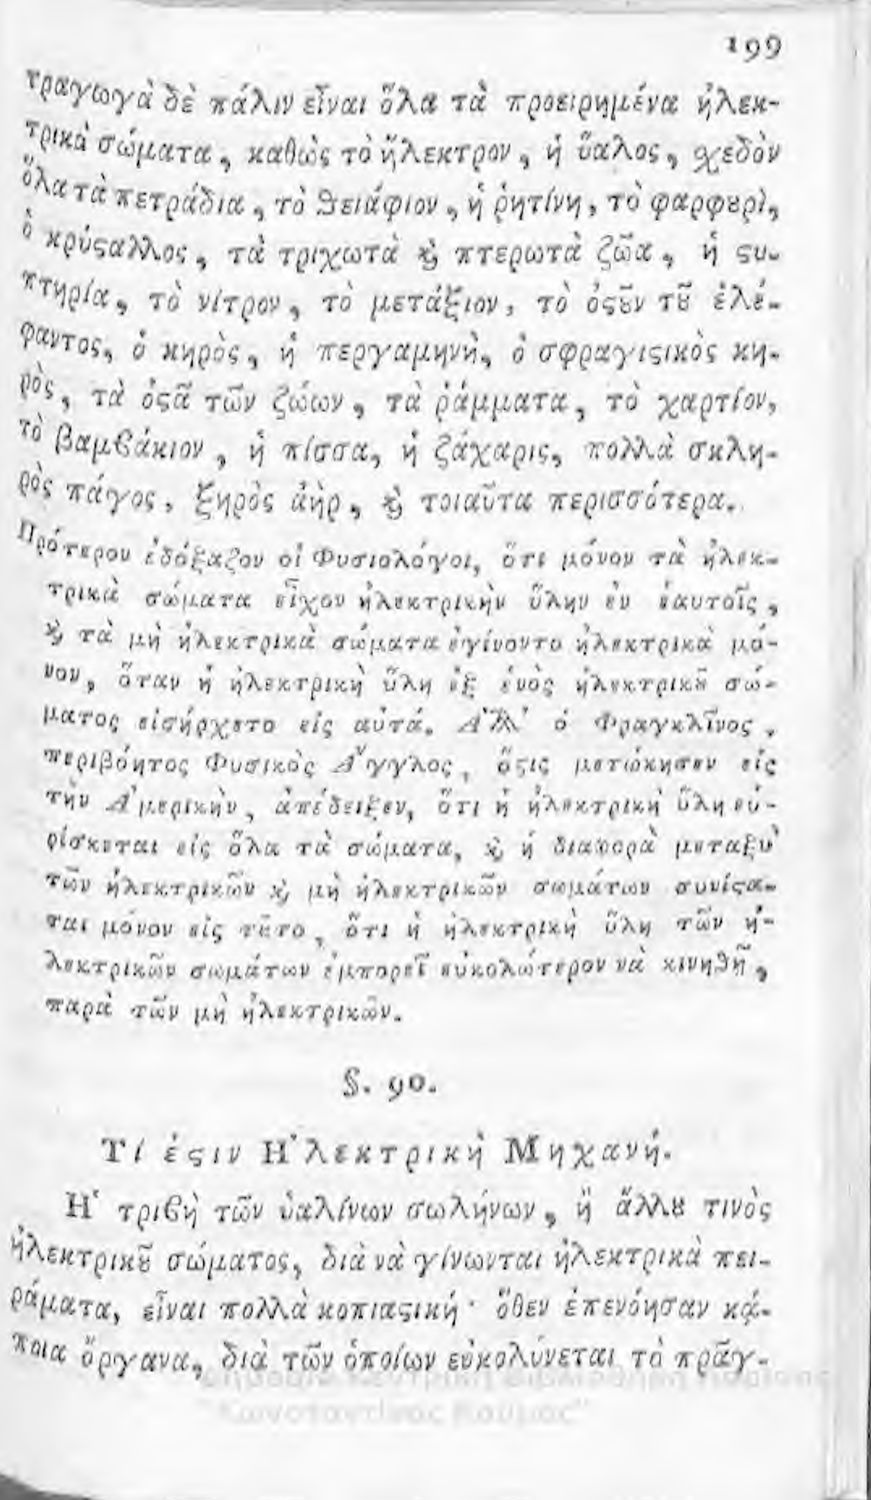 199
τραγωγὰ δὲ πάλιν εἶναι ὅλα τὰ προειρημένα ἠλεκ-
τρικὰ σώματα, καθὼς τὸ ἤλεκτρον, ἡ ὕαλος, σχεδὸν
ὅλα τὰ πετράδια, τὸ θειάφιον, ἡ ῥητίνη, τὸ φαρφȣρὶ,
ὁ κρύϛαλλος, τὰ τριχωτὰ ϗ πτερωτὰ ζῶα, ἡ ϛυ-
πτηρία, τὸ νίτρον, τὸ μετάξιον, τὸ ὀϛȣ͂ν τȣ͂ ἐλέ-
φαντος, ὁ κηρὸς, ἡ περγαμηνὴ, ὁ σφραγιϛικὸς κη-
ρὸς, τὰ ὀϛᾶ τῶν ζώων, τὰ ῥάμματα, τὸ χαρτίον,
τὸ βαμϐάκιον, ἡ πίσσα, ἡ ζάχαρις, πολλὰ σκλη-
ρὸς πάγος, ξηρὸς ἀὴρ, ϗ τοιαῦτα περισσότερα.
Πρότερον ἐδόξαζον οἱ Φυσιολόγοι, ὅτι μόνον τὰ ἠλεκ-
τρικὰ σώματα εἶχον ἠλεκτρικὴν ὕλην ἐν ἑαυτοῖς,
ϗ τὰ μὴ ἠλεκτρικὰ σώματα ἐγίνοντο ἠλεκτρικὰ μό-
νον, ὅταν ἡ ἠλεκτρικὴ ὕλη ἐξ ἑνὸς ἠλεκτρικȣ͂ σώ-
ματος εἰσήρχετο εἰς αὐτά. Ἀλλ' ὁ Φραγκλῖνος,
περιβόητος Φυσικὸς Ἄγγλος, ὅϛις μετώκησεν εἰς
τὴν Ἀμερικὴν, ἀπέδειξεν, ὅτι ἡ ἠλεκτρικὴ ὕλη εὑ-
ρίσκεται εἰς ὅλα τὰ σώματα, ϗ ἡ διαφορὰ μεταξὺ
τῶν ἠλεκτρικῶν ϗ μὴ ἠλεκτρικῶν σωμάτων συνίϛα-
ται μόνον εἰς τȣ͂το, ὅτι ἡ ἠλεκτρικὴ ὕλη τῶν ἠ-
λεκτρικῶν σωμάτων ἐμπορεῖ εὐκολώτερον νὰ κινηθῇ,
παρὰ τῶν μὴ ἠλεκτρικῶν.
§. 90.
Τί ἐϛιν Ἠλεκτρικὴ Μηχανή.
Ἡ τριϐὴ τῶν ὑαλίνων σωλήνων, ἢ ἄλλȣ τινὸς
ἠλεκτρικȣ͂ σώματος, διὰ νὰ γίνωνται ἠλεκτρικὰ πει-
ράματα, εἶναι πολλὰ κοπιαϛική· ὅθεν ἐπενόησαν κά-
ποια ὄργανα, διὰ τῶν ὁποίων εὐκολύνεται τὸ πρᾶγ-
Δημόσια Κεντρική Βιβλιοθήκη Λάρισας
"Κωνσταντίνος Κούμας"